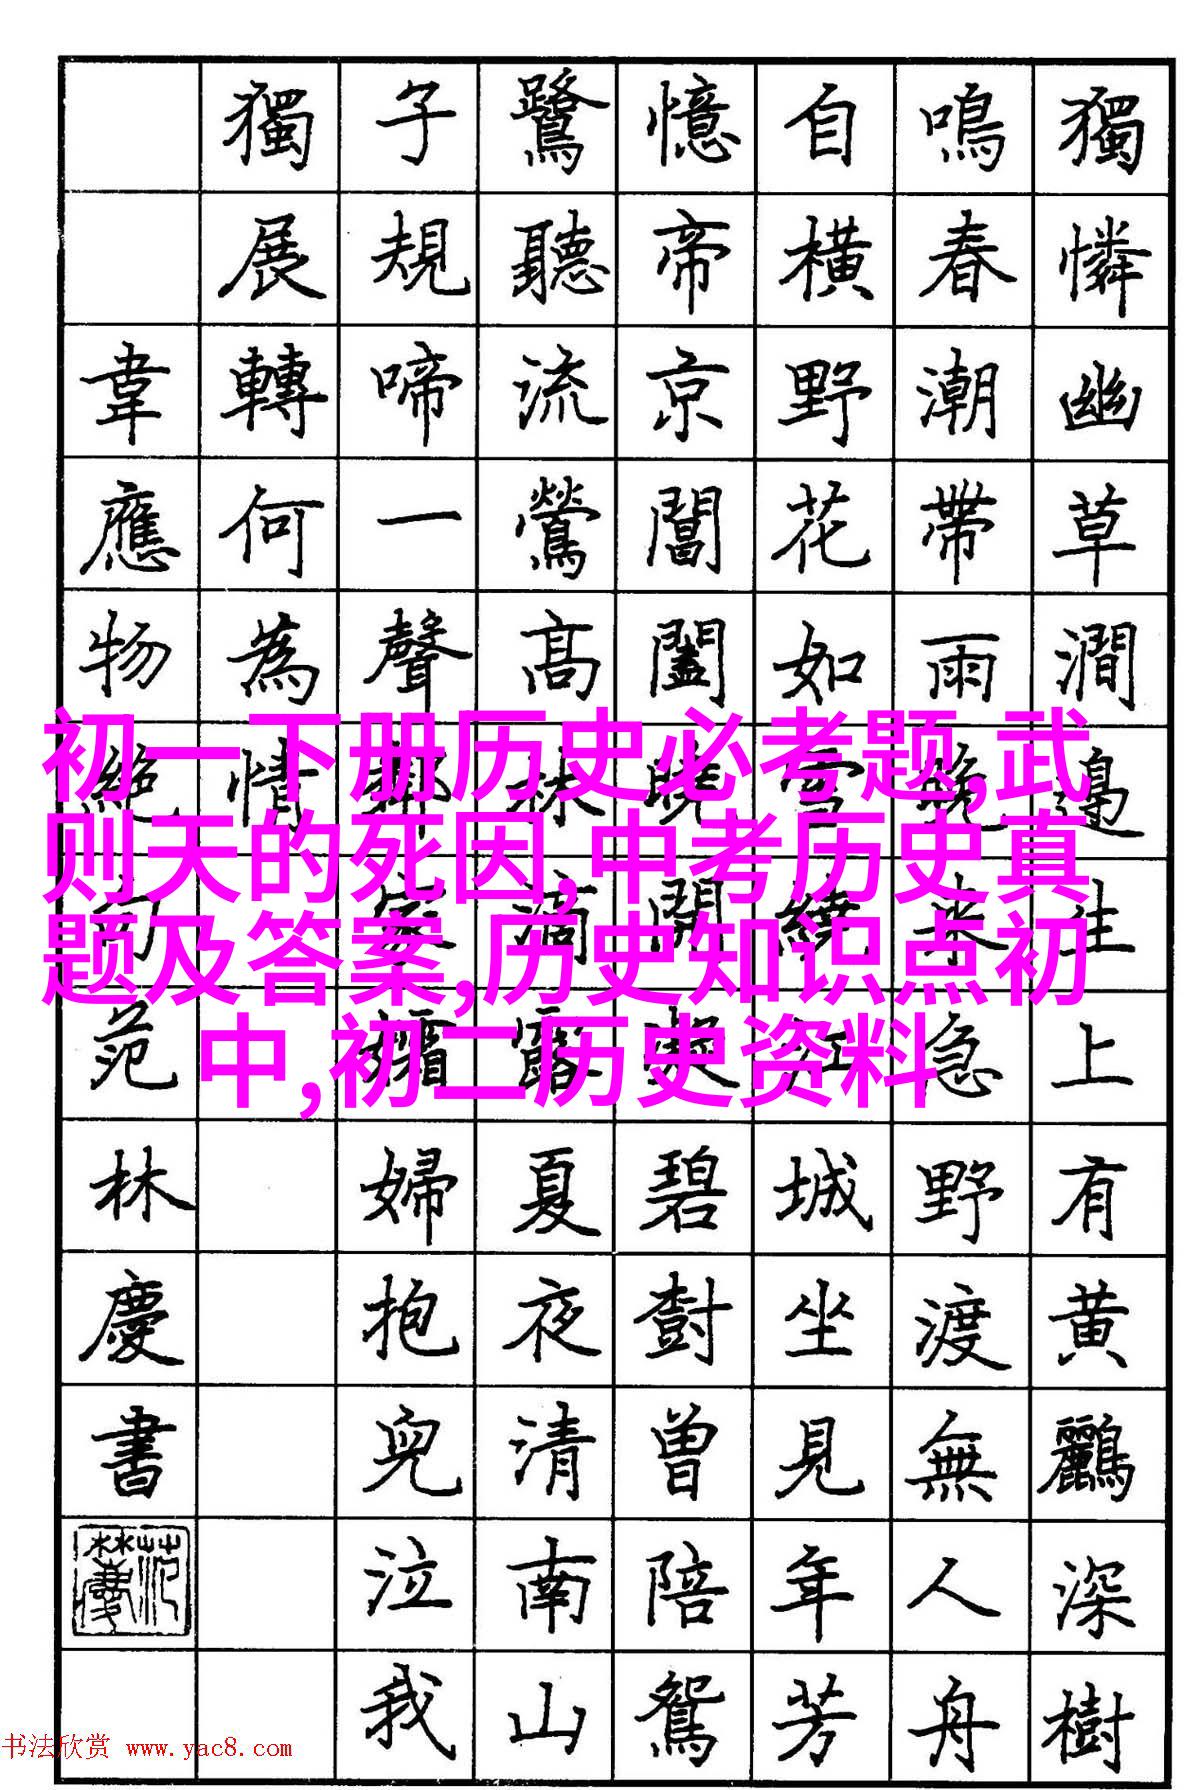 獨憐幽草澗邊生上有黄鸝深樹
鳴春潮帶雨晚来急野渡無人舟
自橫野花如雪繞江城坐見年芳
憶帝京閶闔曉開凝碧樹曾陪鴛
鷺聽流鶯高林滴露夏夜清南山
子規啼一聲鄰家孀婦抱兒泣我
獨展轉何為情
韋應物絕句范林慶書
初一下册历史必考题,武
则天的死因,中考历史真
题及答案,历史知识点初
中,初二历史资料
书法欣赏 www.yac8.com